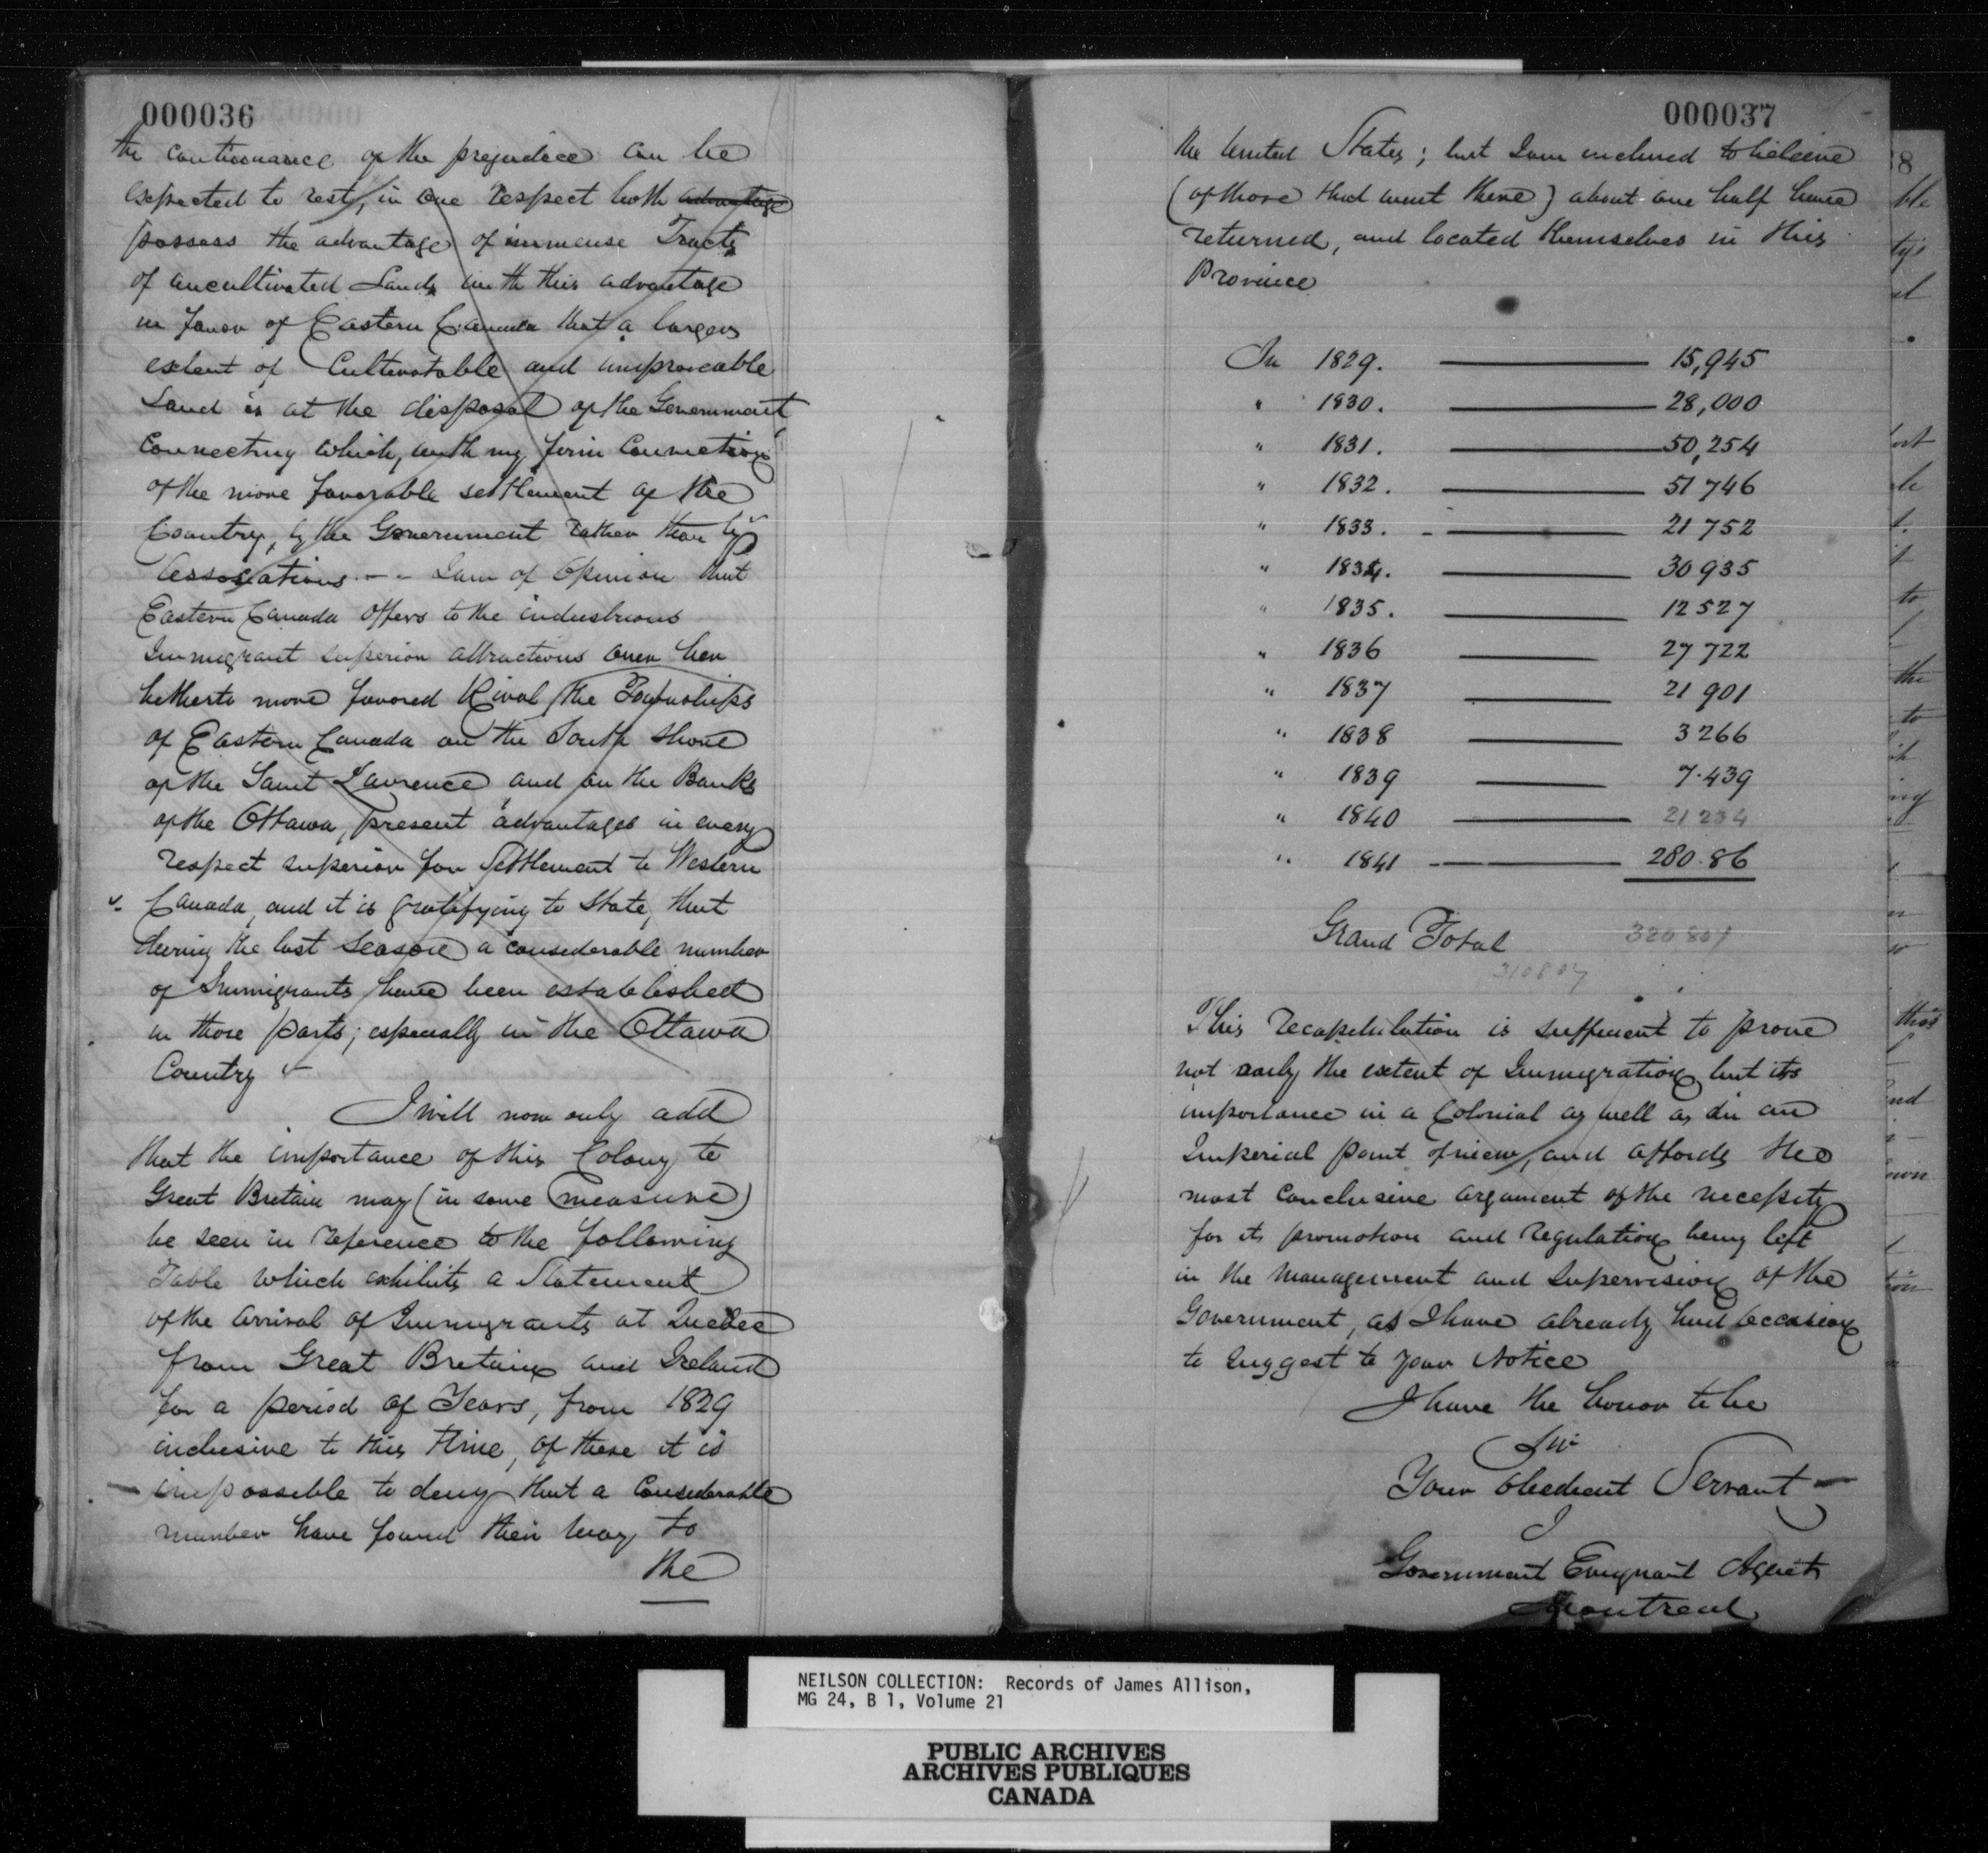 000036
the continuance of the prejudice can be
expected to rest, in one respect both advantage
possess the advantage of immense Tracts
of uncultivated Lands with this advantage
in favor of Eastern Canada that a larger
extent of Cultivatable and improveable
Land is at the disposal of the Government
Connecting which, with my firm Conviction
of the more favorable settlement of the
Country, by the Government rather than by
Associations. -- I am of Opinion that
Eastern Canada offers to the industrious
Immigrant superior attractions over her
hitherto more favored Rival, the Townships
of Eastern Canada on the South Shore
of the Saint Lawrence and on the Banks
of the Ottawa, present advantages in every
respect superior for Settlement to Western
Canada, and it is gratifying to State, that
during the last Season a considerable number
of Immigrants have been established
in those parts; especially in the Ottawa
Country
I will now only add
that the importance of this Colony to
Great Britain may (in some measure)
be seen in reference to the following
Table which exhibits a Statement
of the arrival of Immigrants at Quebec
from Great Britain and Ireland
for a period of Years, from 1829
inclusive to this time, of these it is
impossible to deny that a Considerable
number have found their way to
the
000037
the United States; but I am inclined to believe
(of those that went there) about one half have
returned, and located themselves in this
Province
In 1829. 15,945
" 1830. 28,000
" 1831. 50,254
" 1832. 51 746
" 1833. 21 752
" 1834. 30 935
" 1835. 12 527
" 1836 27 722
" 1837 21 901
" 1838 3 266
" 1839 7.439
" 1840 21 234
" 1841 280.86
Grand Total 320 807
310807
This recapitulation is sufficient to prove
not only the extent of Immigration, but its
importance in a Colonial as well as in an
Imperial point of view, and affords the
most Conclusive argument of the necessity
for its promotion and Regulation being left
in the Management and Supervision of the
Government, as I have already had occasion
to suggest to your Notice
I have the honor to be
Sir
Your obedient Servant
Government Emigrant Agent
Montreal
NEILSON COLLECTION: Records of James Allison,
MG 24, B 1, Volume 21
PUBLIC ARCHIVES
ARCHIVES PUBLIQUES
CANADA